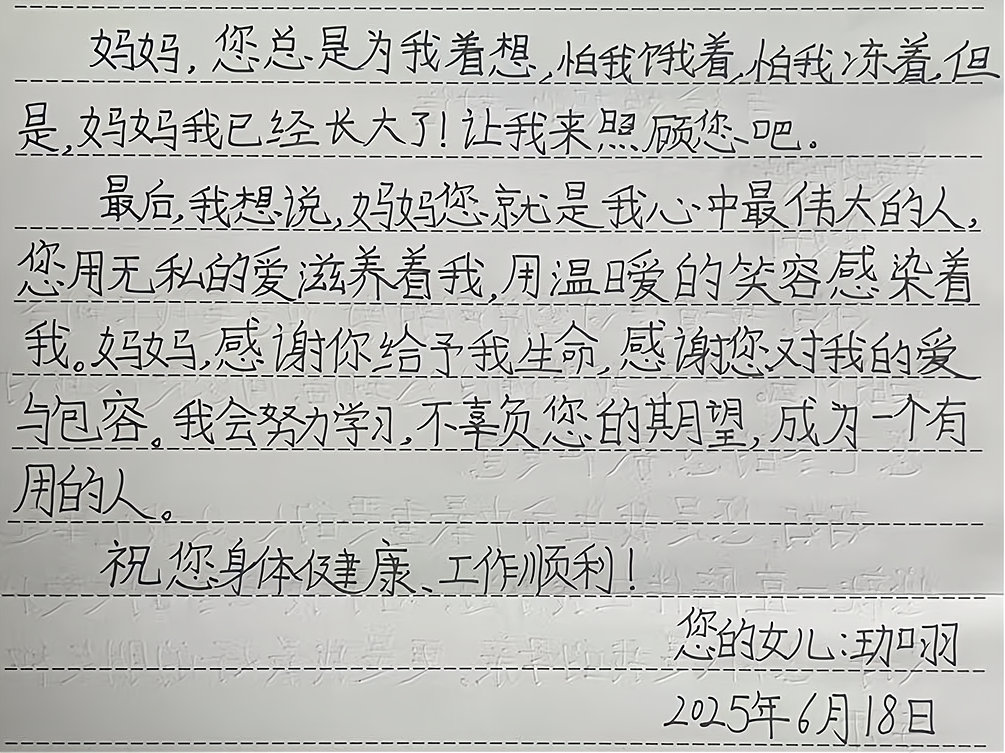 妈妈，您总是为我着想，怕我饿着，怕我冻着，但
是，妈妈我已经长大了！让我来照顾您吧。
最后，我想说，妈妈您就是我心中最伟大的人，
您用无私的爱滋养着我，用温暖的笑容感染着
我。妈妈，感谢你给予我生命，感谢您对我的爱
与包容。我会努力学习，不辜负您的期望，成为一个有
用的人。
祝您身体健康、工作顺利！
您的女儿：珈羽
2025年6月18日